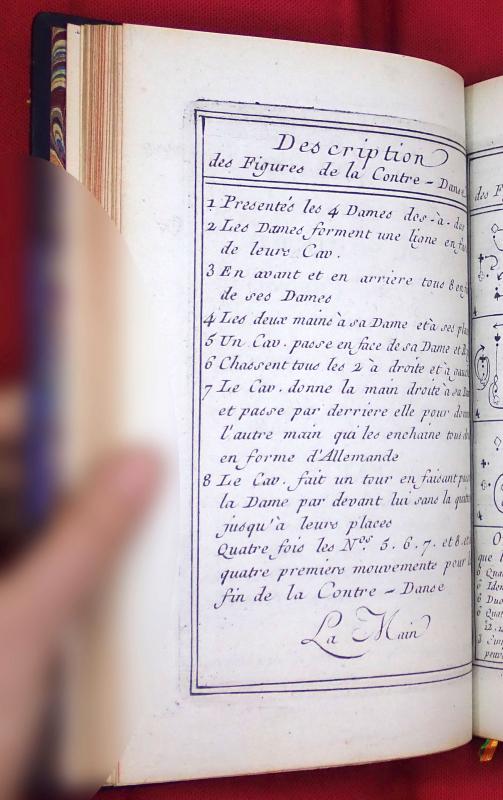 Description
des Figures de la Contre-Danse
1 Presentés les 4 Dames dos-à-dos
2 Les Dames forment une ligne en
de leurs Cav.
3 En avant et en arriere tous 8 en
de ses Dames
4 Les deux mains à sa Dame et à ses
5 Un Cav. passe en face de sa Dame et
6 Chassent tous les 2 à droite et à
7 Le Cav. donne la main droite à sa
et passe par derriere elle pour
l'autre main qui les enchaine tous
en forme d'Allemande
8 Le Cav. fait un tour en faisant
la Dame par devant lui sans la
jusqu'à leurs places
Quatre fois les Nos. 5. 6. 7. et 8.
quatre premiers mouvements pour
fin de la Contre-Danse
La Main
des
4
4
4
que